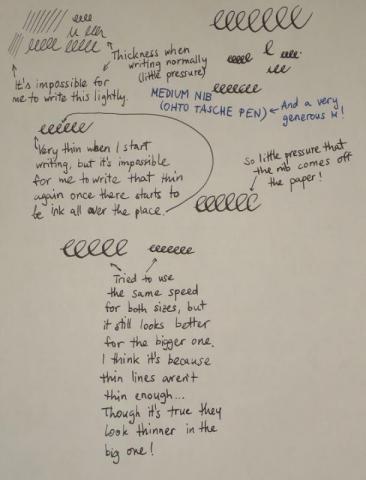 Thickness when
writing normally
(little pressure)
It's impossible for
me to write this lightly.
MEDIUM NIB
(OHTO TASCHE PEN)
And a very
generous M!
Very thin when I start
writing, but it's impossible
for me to write that thin
again once there starts to
be ink all over the place.
So little pressure that
the nib comes off
the paper!
Tried to use
the same speed
for both sizes, but
it still looks better
for the bigger one.
I think it's because
thin lines aren't
thin enough...
Though it's true they
look thinner in the
big one!